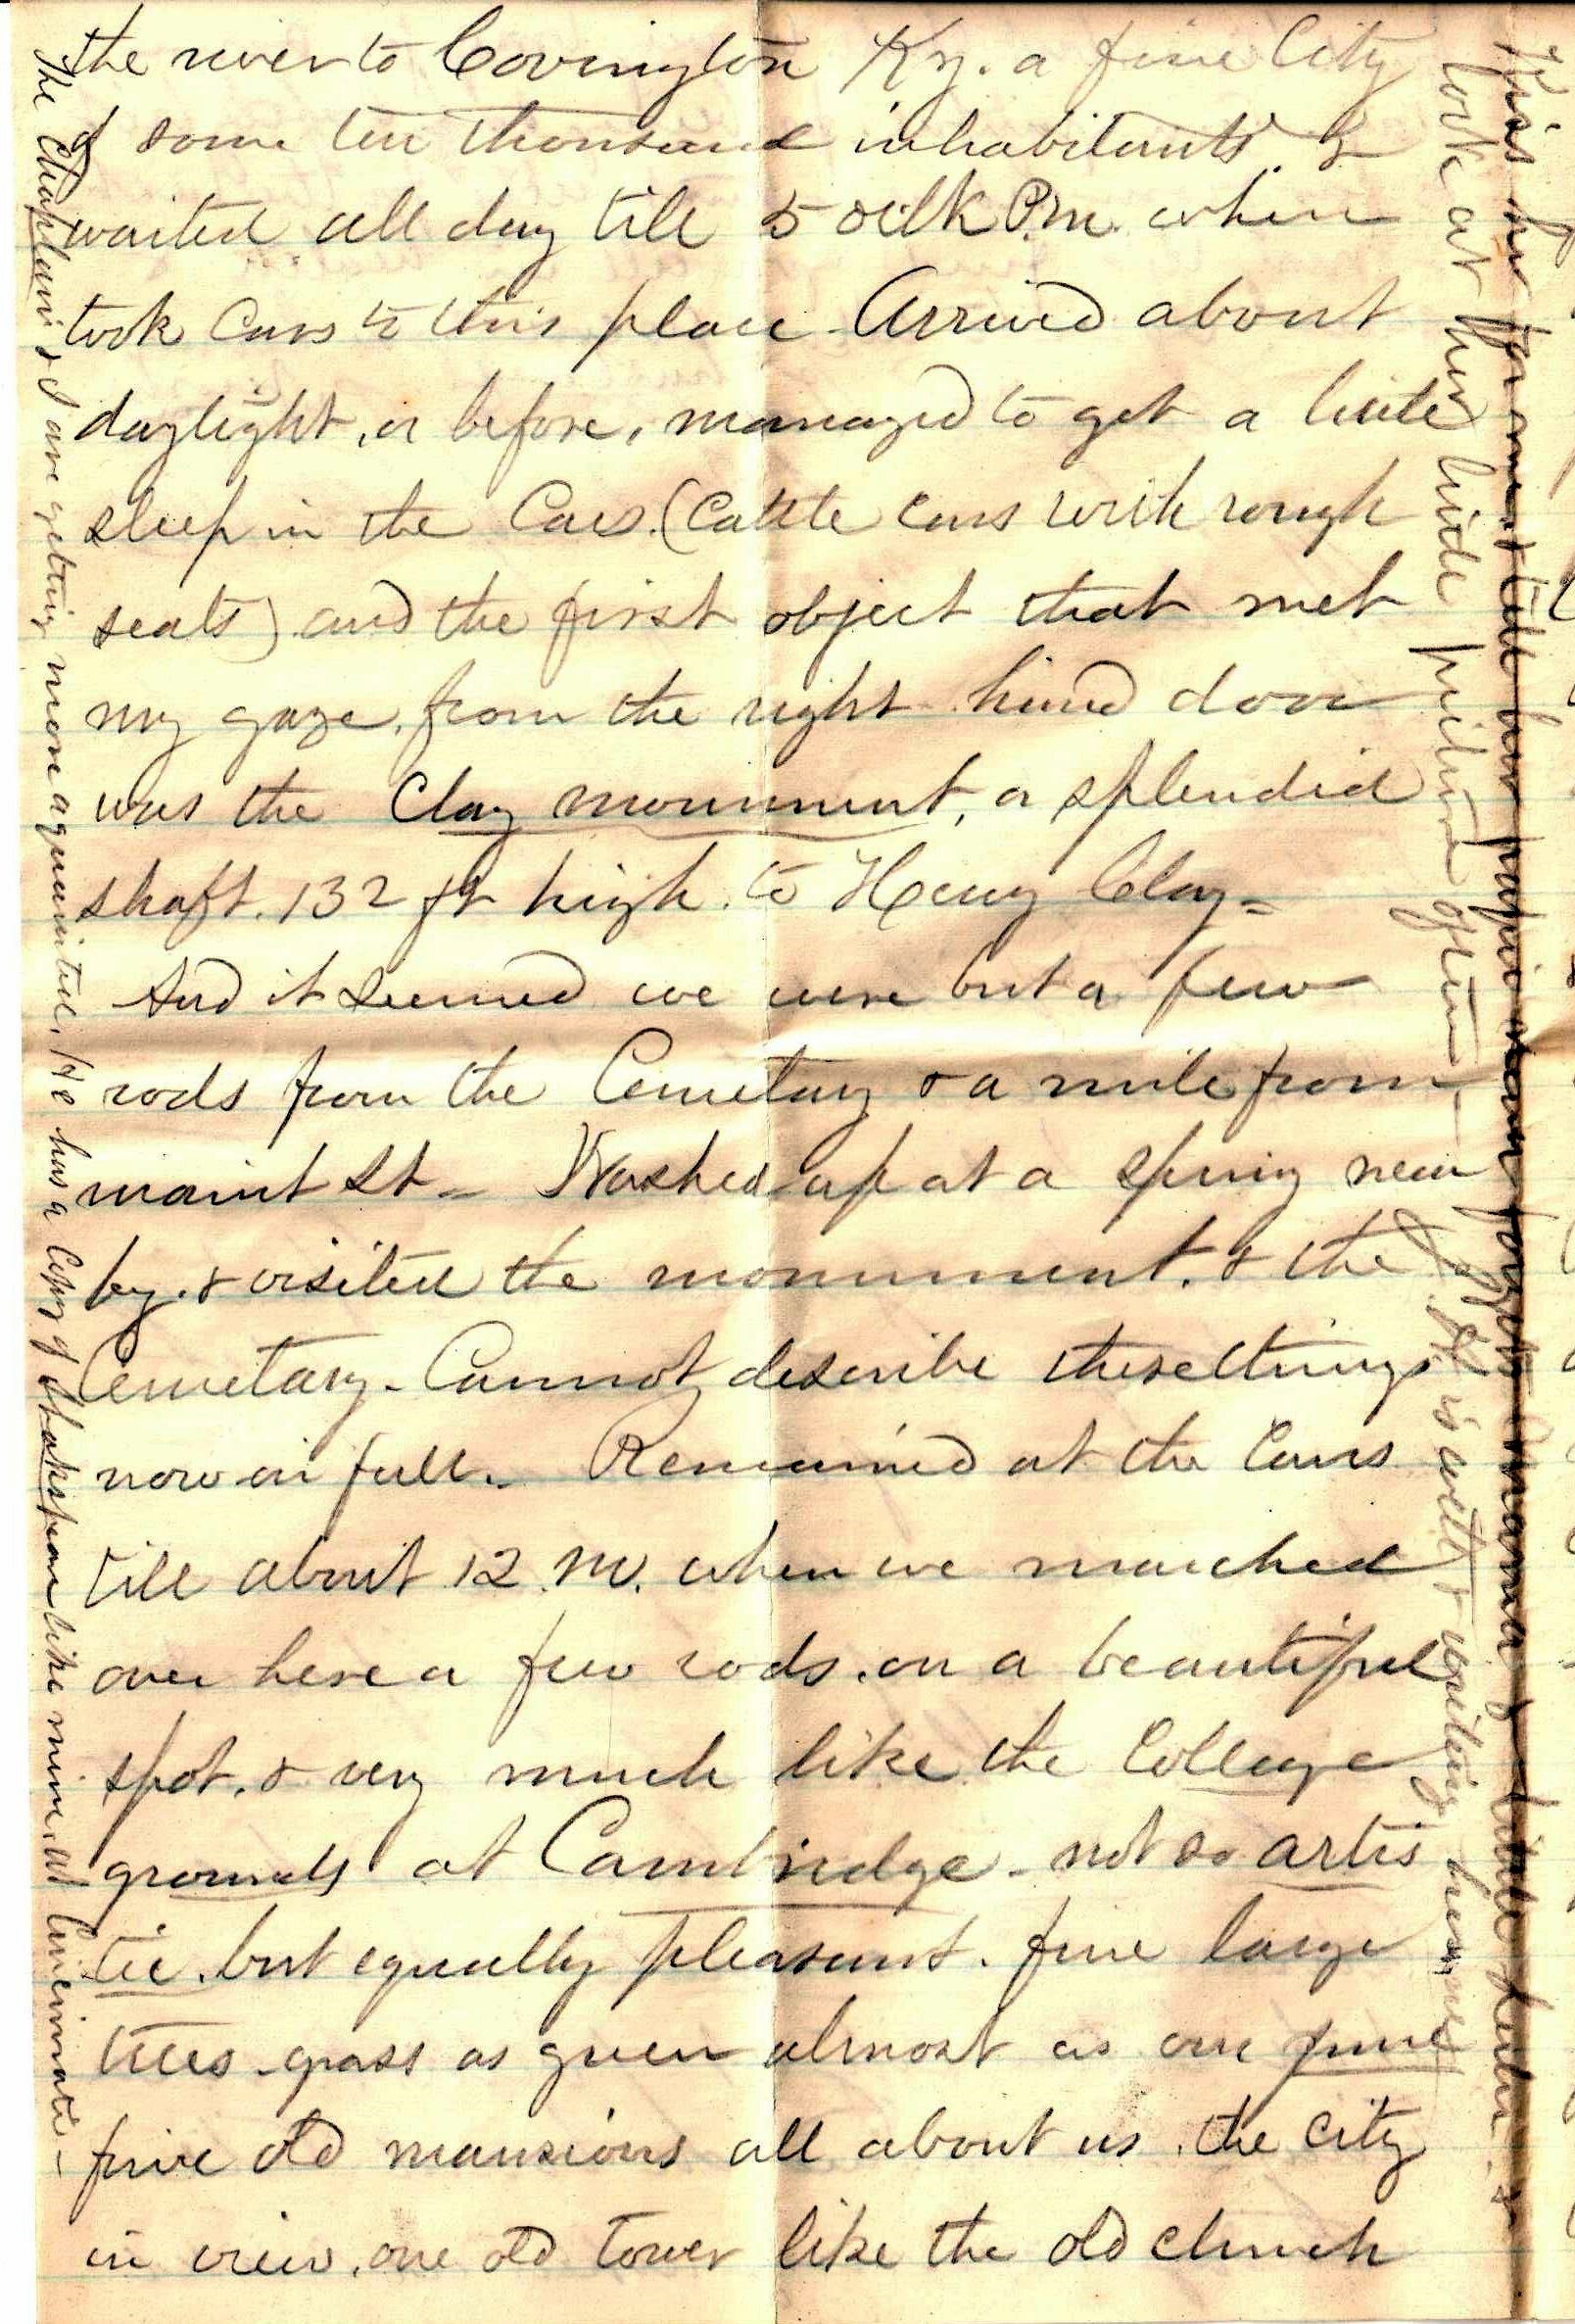 the river to Covington Ky. a fine City
of some ten thousand inhabitants &
waited all day till 5 oclk P.m. when
took Cars to this place Arrived about
daylight, or before, managed to get a little
sleep in the Cars. (Cattle cars with rough
seats) and the first object that met
my gaze, from the right hand door
was the Clay monument, a splendid
shaft. 132 ft high. to Henry Clay-
And it seemed we were but a few
rods from the Cemetary & a mile from
maint St- Washed up at a spring near
by. & visited the monument. & the
Cemetary- Cannot describe these things
now in full. Remained at the Cars
till about 12. M. when we marched
over here a few rods. on a beautiful
spot. & very much like the College
grounds at Cambridge- not so artis
tic. but equally pleasant. fine large
trees- grass as green almost as our June
fine old mansions all about us. the City
in view. one old tower like the old church
The Chaplain & I are getting more aquainted. He has a Copy of Shakspeare like mine, at Cincinnati-
look at her little picture often- is well & writing
Kiss her for me & tell her papa forgets mama &